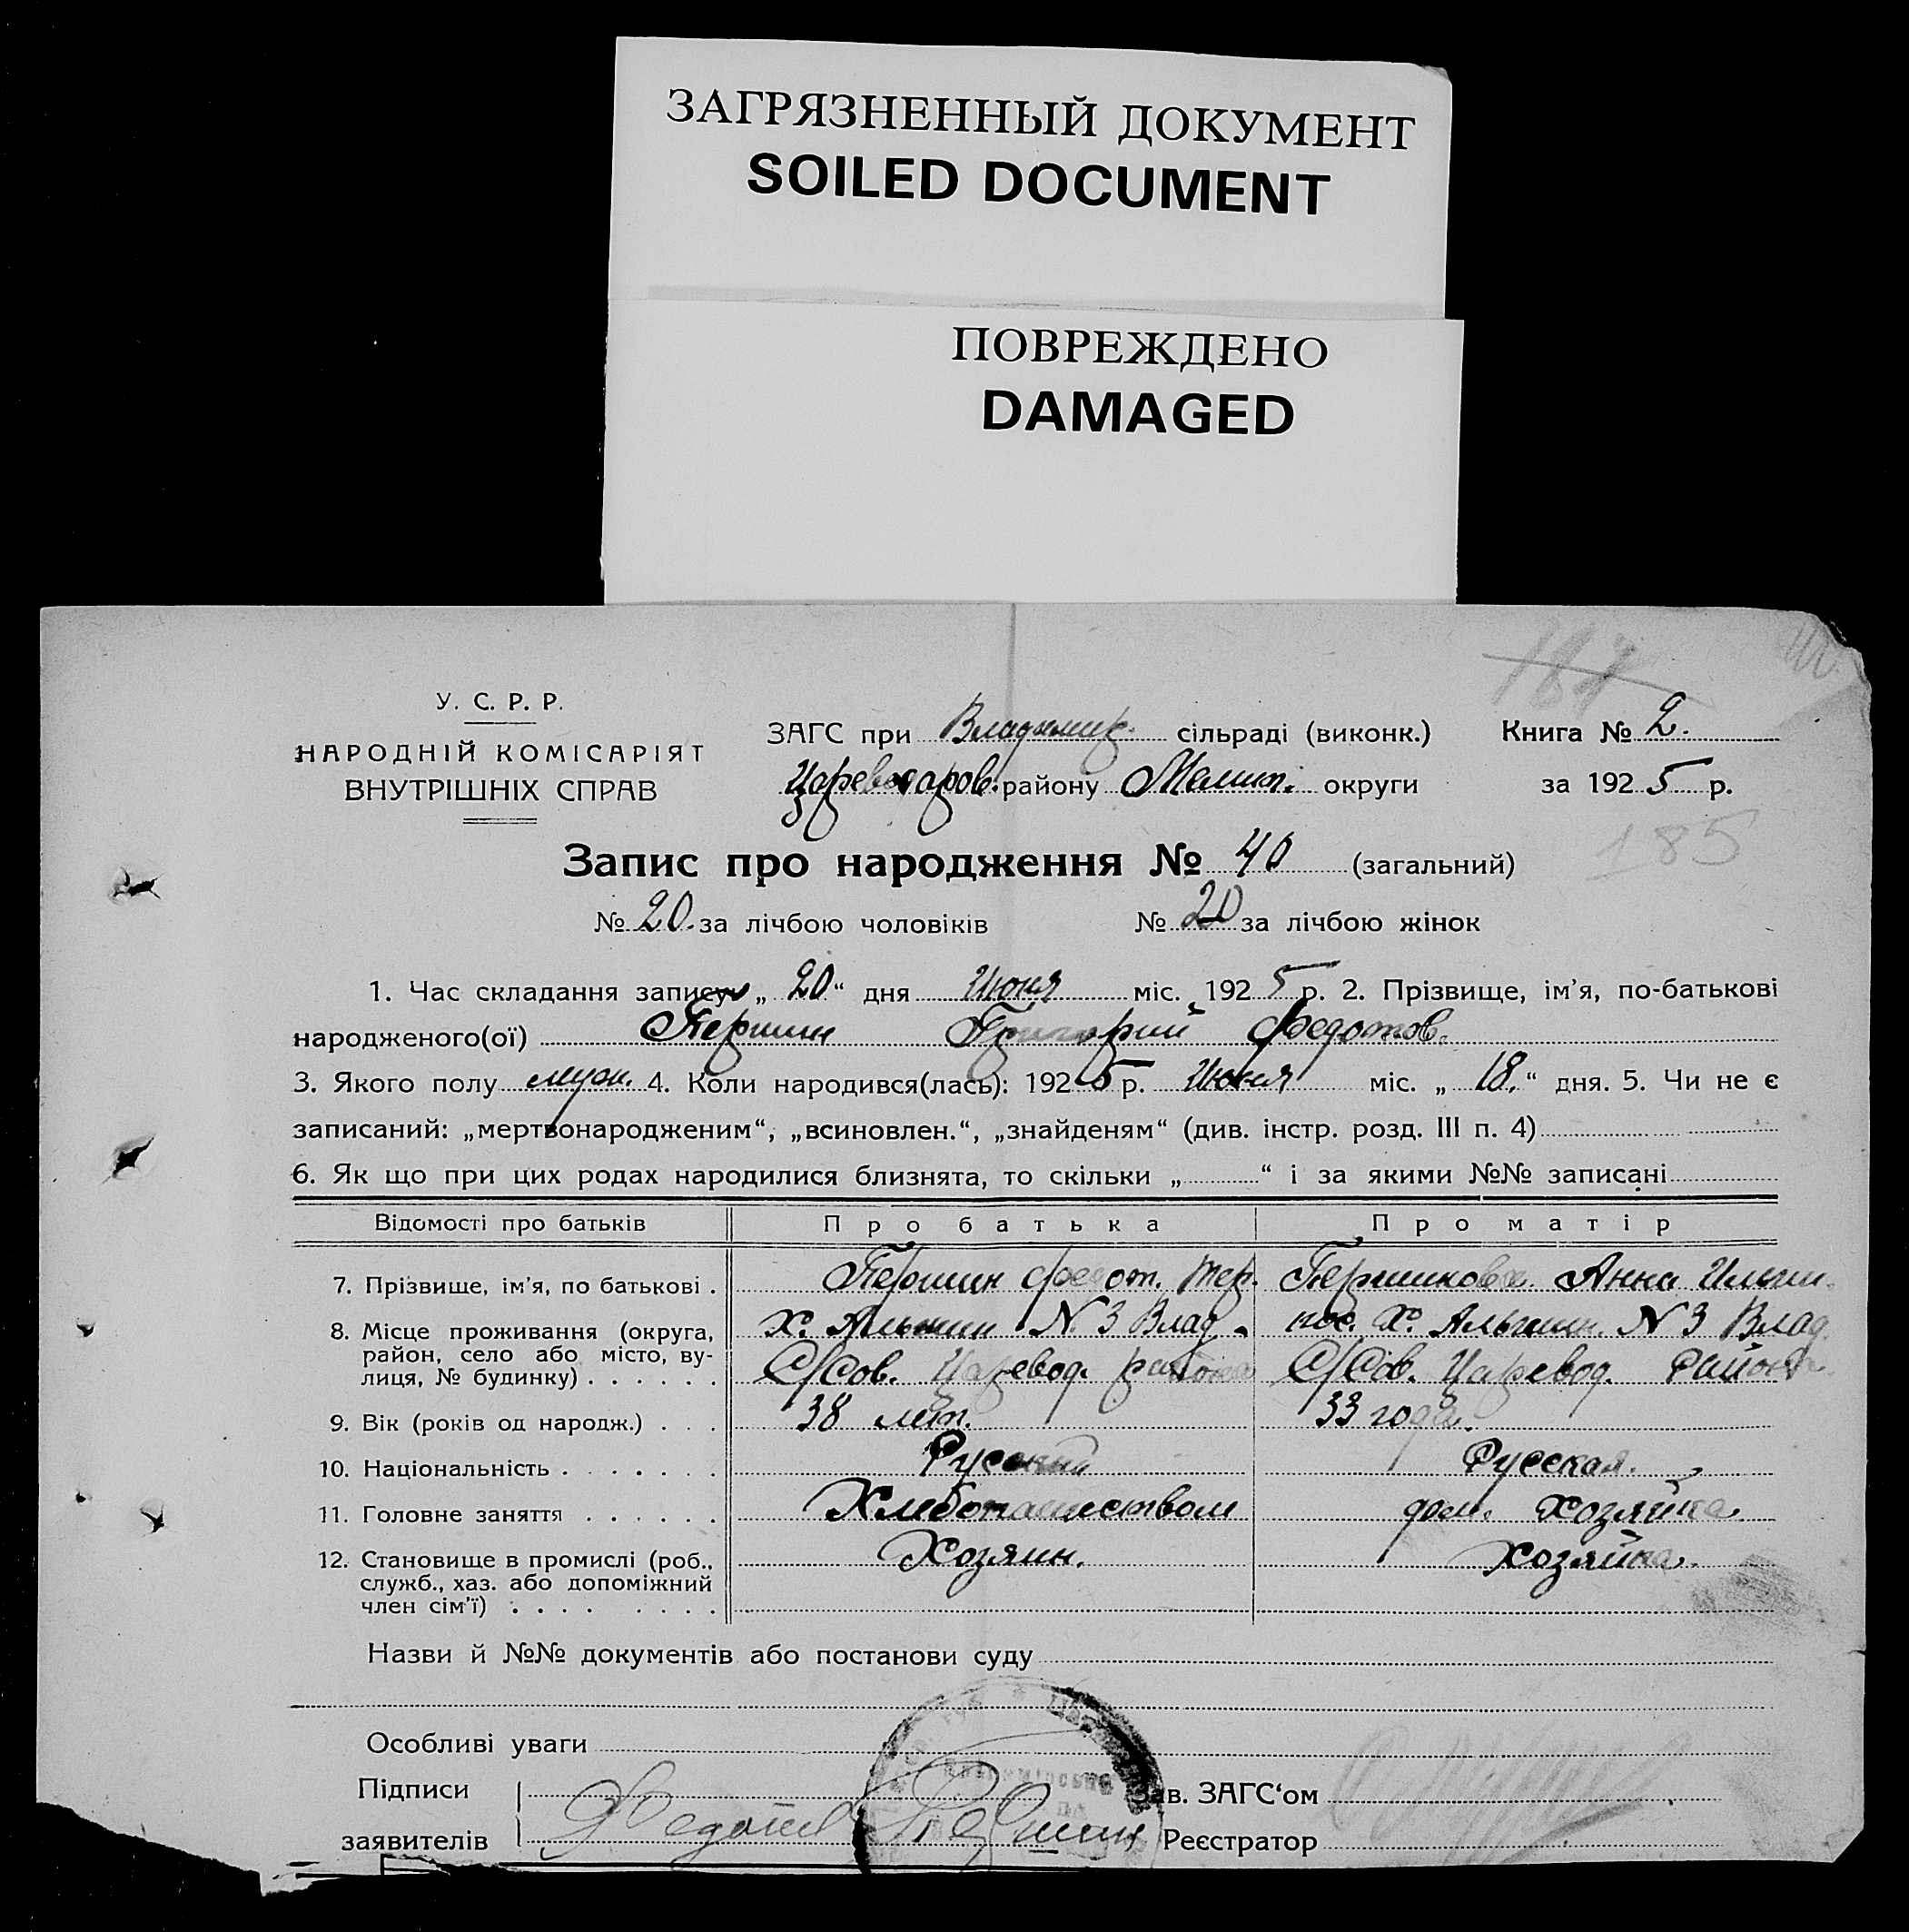 ЗАГРЯЗНЕННЫЙ ДОКУМЕНТ
SOILED DOCUMENT
ПОВРЕЖДЕНО
DAMAGED
У. С. Р. Р.
НАРОДНІЙ КОМІСАРІЯТ
ВНУТРІШНІХ СПРАВ
ЗАГС при Владимир. сільраді (виконк.) Книга № 2.
району Мелит. округи за 1925 р.
185
Запис про народження № 40 (загальний)
№ 20. за лічбою чоловіків № 20 за лічбою жінок
1. Час складання запису „20“ дня Июня міс. 1925 р. 2. Прізвище, ім'я, по-батькові
народженого(ої) Першин Григорий Федотов.
3. Якого полу муж. 4. Коли народився(лась): 1925 р. Июня міс. „18.“ дня. 5. Чи не є
записаний: „мертвонародженим“, „всиновлен.“, „знайденям“ (див. інстр. розд. III п. 4)
6. Як що при цих родах народилися близнята, то скільки „ “ і за якими №№ записані
Відомості про батьків Про батька Про матір
7. Прізвище, ім'я, по батькові . Першин Федот. Першикова Анна
8. Місце проживання (округа, х. N 3 Влад. пос. Х. N 3 Влад.
район, село або місто, ву- С/Сов. Царевод. района С/Сов. Царевод. Района
лиця, № будинку) . . . . . .
9. Вік (років од народж.) . . . 38 лет. 33 года.
10. Національність . . . . . . . Руский Русская.
11. Головне заняття . . . . . . Хлебопашеством дом. хозяйка
12. Становище в промислі (роб., Хозяин. Хозяйка.
служб., хаз. або допоміжний
член сім'ї) . . . . . . . .
Назви й №№ документів або постанови суду
Особливі уваги
Підписи Зав. ЗАГС‘ом
заявителів Федот Першин Реєстратор